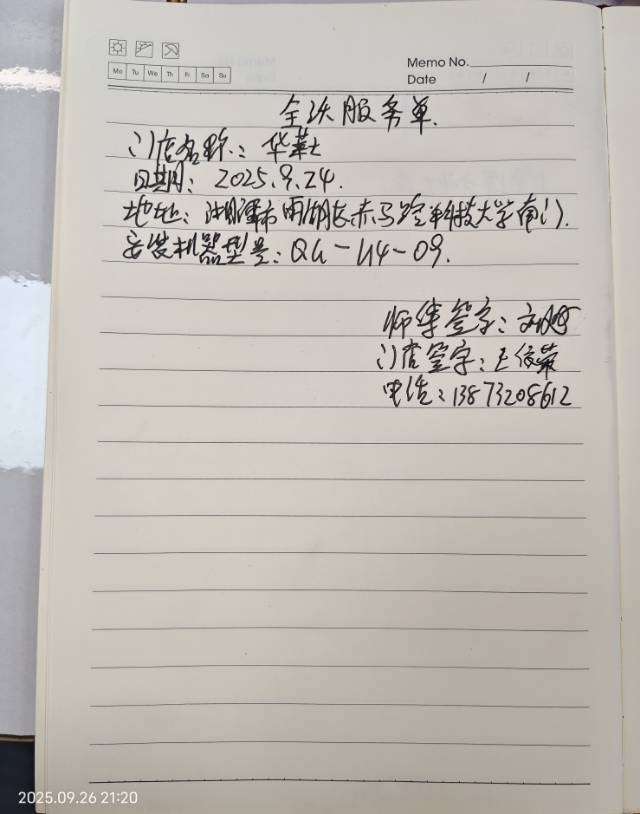 Mo Tu We Th Fr Sa Su
Memo No.
Date / /
全沃服务单.
门店名称:华莱士
日期:2025.9.24.
地址:湖南湘潭市雨湖区赤马路科技大学南门.
安装机器型号:QG-U4-09.
师傅签字:刘
门店签字:王俊荣
电话:13873208612
2025.09.26 21:20